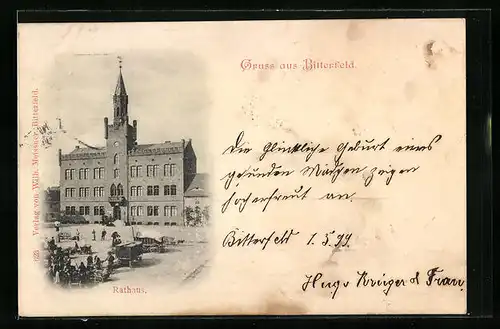 Gruss aus Bitterfeld.
Die glückliche Geburt eines
gesunden Mädchen zeigen
hocherfreut an.
Bitterfeld 1.5.99.
Hugo Krüger & Frau
Rathaus.
Verlag von Wilh. Bitterfeld.